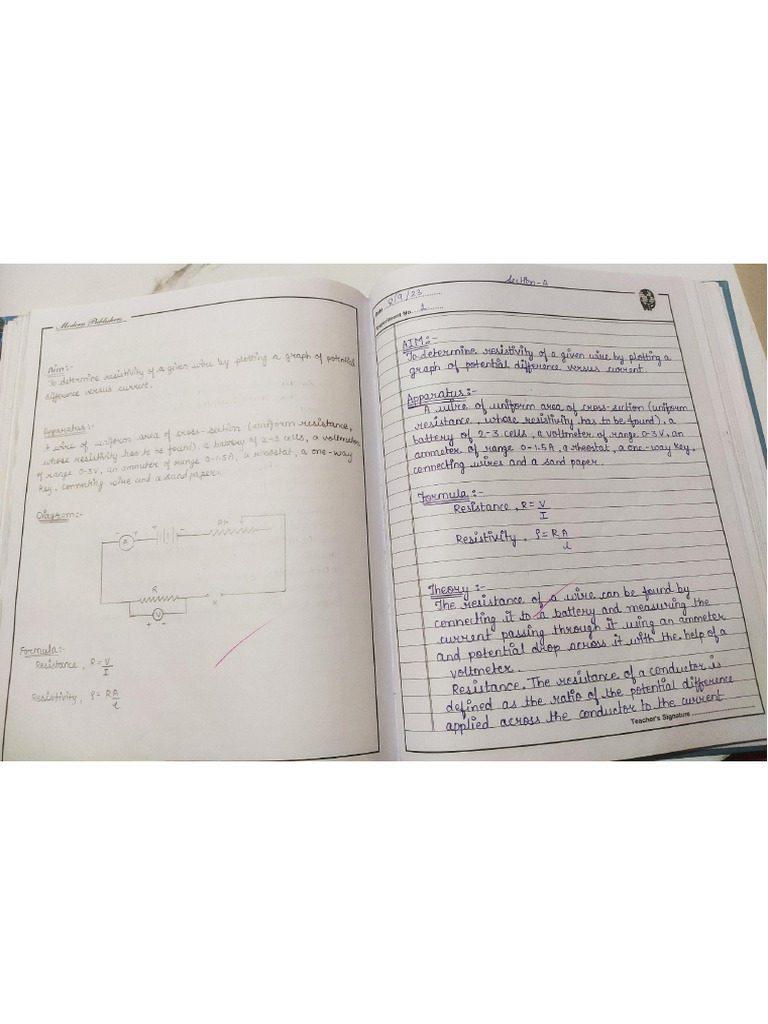 Modern Publishers
Aim:-
To determine resistivity of a given wire by plotting a graph of potential
difference versus current.
Apparatus:-
A wire of uniform area of cross-section (uniform resistance,
whose resistivity has to be found), a battery of 2-3 cells, a voltmeter
of range 0-3V, an ammeter of range 0-1.5A, a rheostat, a one-way
key, connecting wire and a sand paper.
Diagram:-
- A + + - Rh
R
V K
+ -
Formula:-
Resistance, R = V
I
Resistivity, ρ = RA
l
Section-A
Date 2/9/23
Experiment No. 1
AIM:-
To determine resistivity of a given wire by plotting a
graph of potential difference versus current.
Apparatus:-
A wire of uniform area of cross-section (uniform
resistance, whose resistivity has to be found), a
battery of 2-3 cells, a voltmeter of range 0-3V, an
ammeter of range 0-1.5A, a rheostat, a one-way key,
connecting wires and a sand paper.
Formula:-
Resistance, R = V
I
Resistivity, ρ = RA
l
Theory:-
The resistance of a wire can be found by
connecting it to a battery and measuring the
current passing through it using an ammeter
and potential drop across it with the help of a
voltmeter.
Resistance. The resistance of a conductor is
defined as the ratio of the potential difference
applied across the conductor to the current
Teacher's Signature